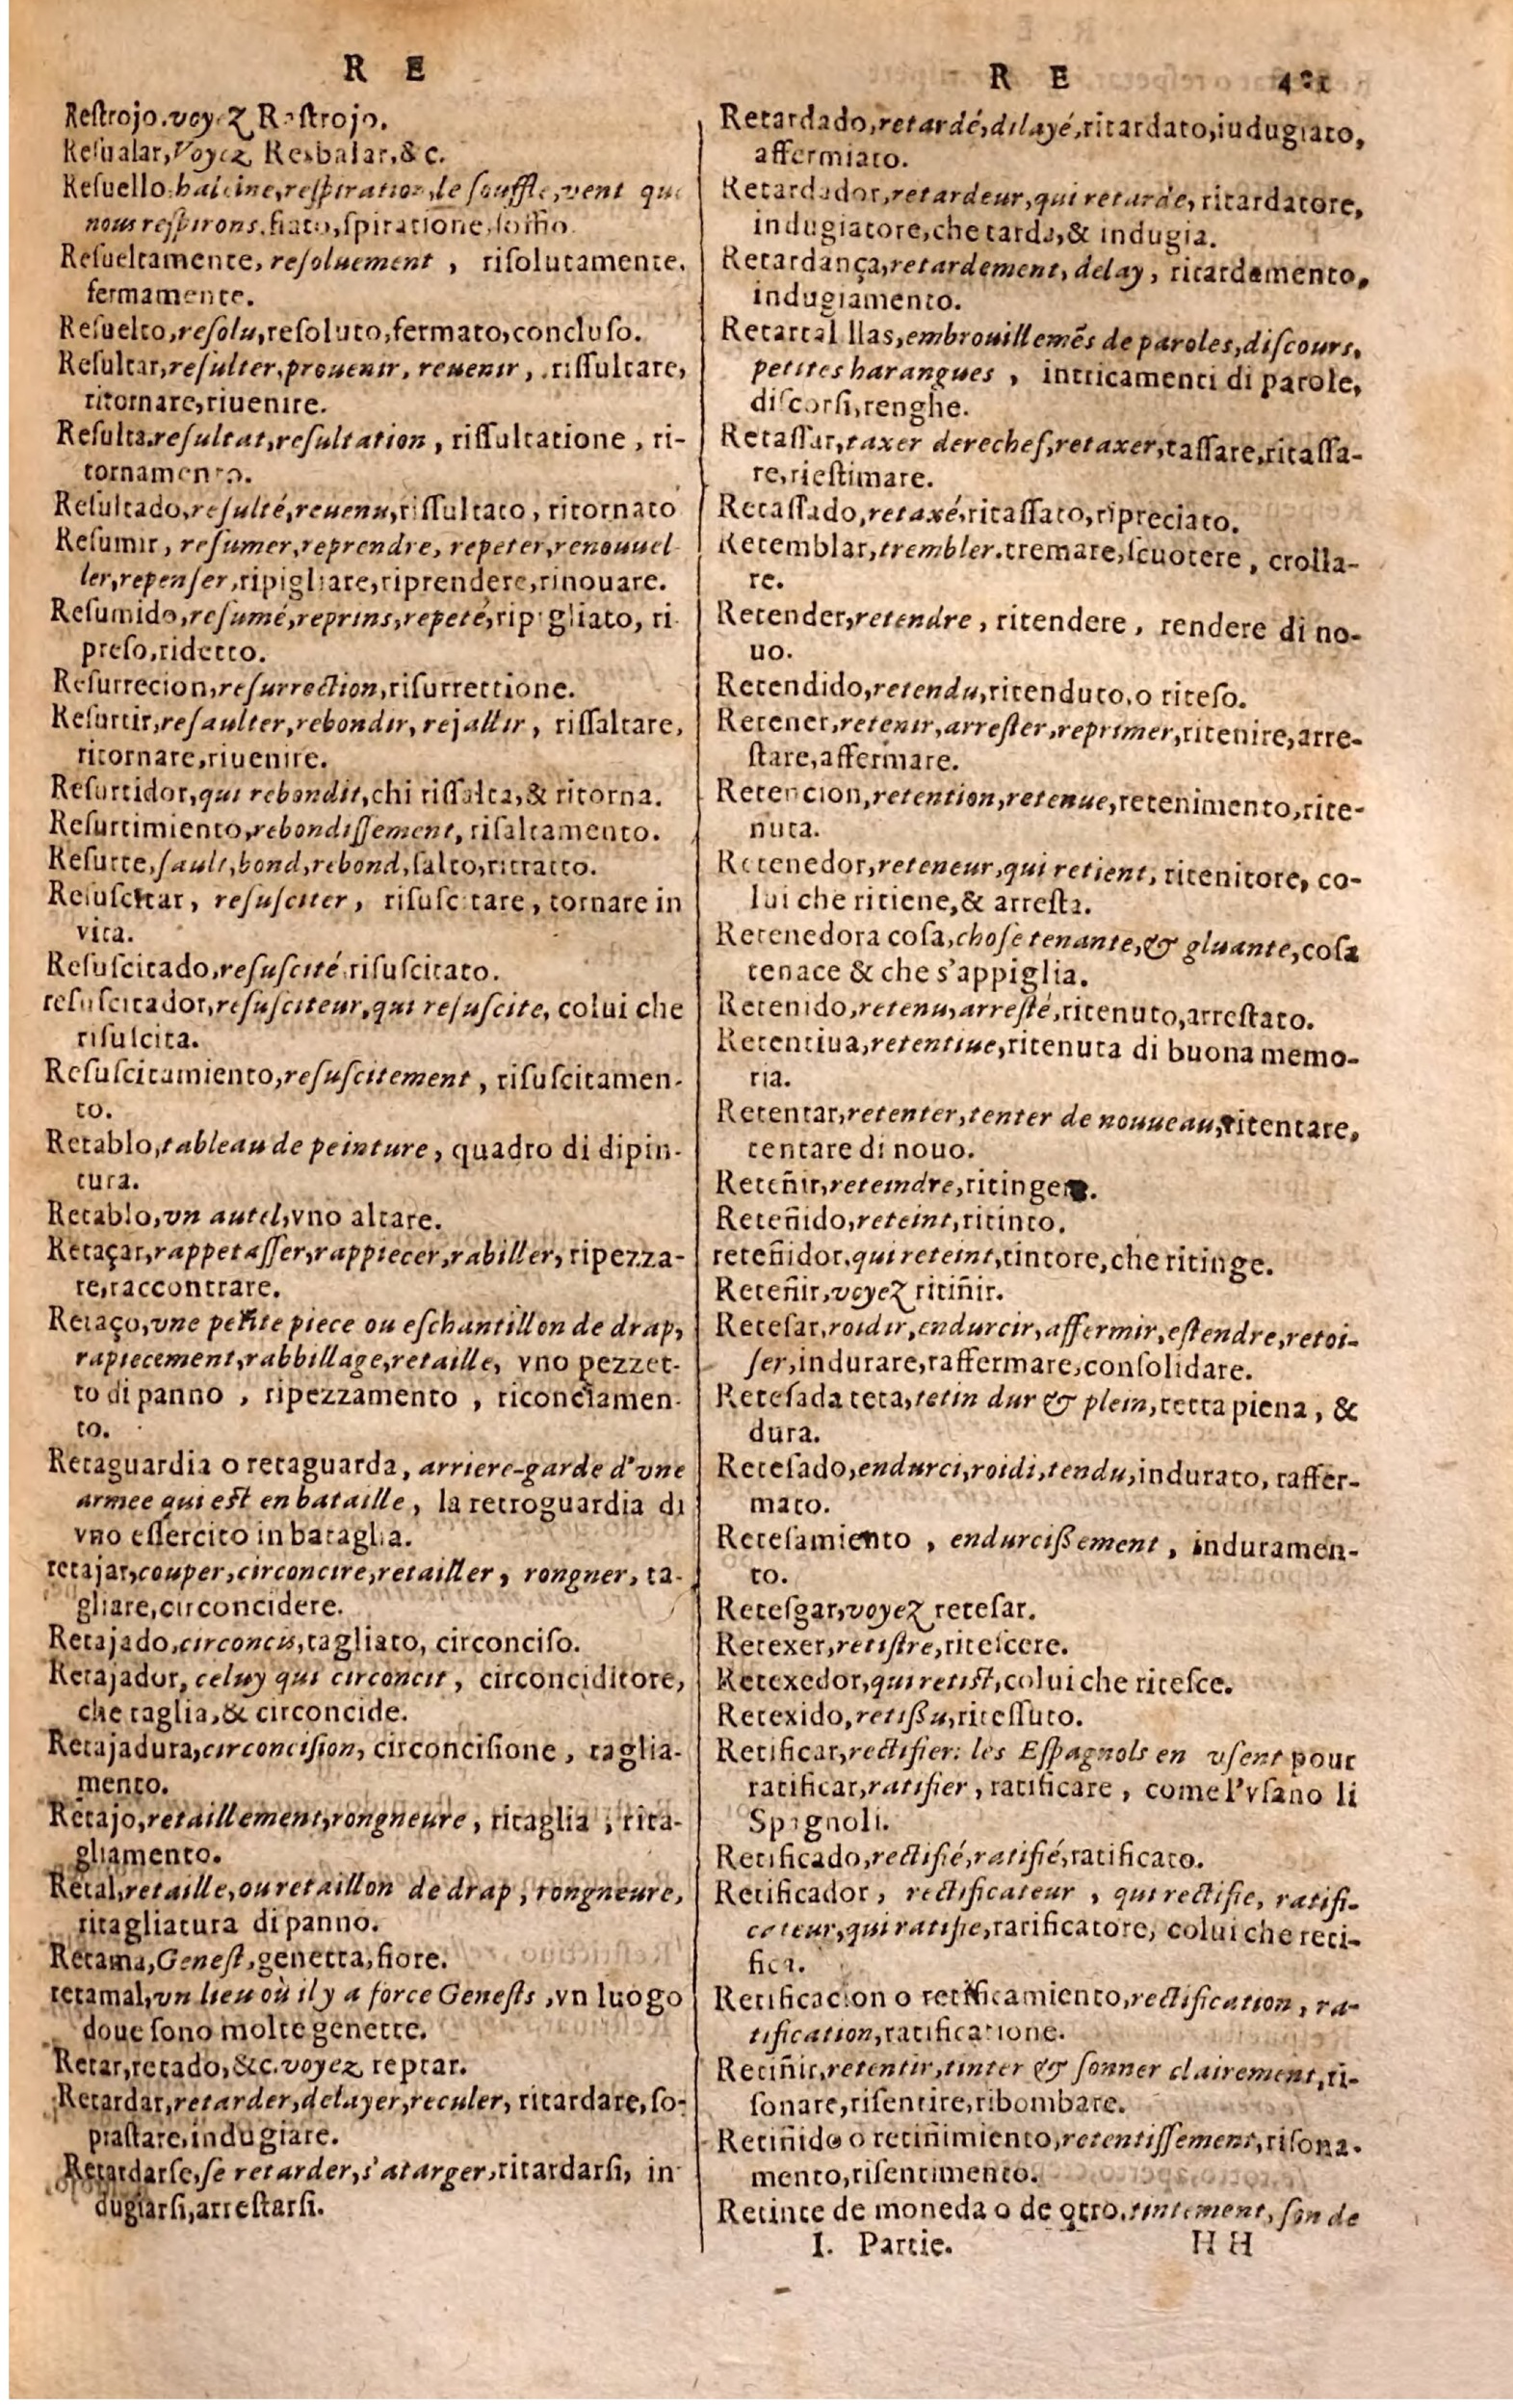 R E
Reſtrojo, voyez Raſtrojo.
Reſualar, Voyez Resbalar, &c.
Reſuello haleine, reſpiration, le ſouffle, vent que
nous reſpirons, fiato, ſpiratione, ſoffio.
Reſueltamente, reſoluement, riſolutamente,
fermamente.
Reſuelto, reſolu, reſoluto, fermato, concluſo.
Reſultar, reſulter, prouenir, reuenir, riſſultare,
ritornare, riuenire.
Reſulta, reſultat, reſultation, riſſultatione, ri-
tornamento.
Reſultado, reſulté, reuenu, riſſultato, ritornato
Reſumir, reſumer, reprendre, repeter, renouuel
ler, repenſer, ripigliare, riprendere, rinouare.
Reſumido, reſumé, reprins, repeté, ripigliato, ri
preſo, ridetto.
Reſurrecion, reſurrection, riſurrettione.
Reſurtir, reſaulter, rebondir, rejallir, riſſaltare,
ritornare, riuenire.
Reſurtidor, qui rebondit, chi riſſalta, & ritorna.
Reſurtimiento, rebondiſſement, riſaltamento.
Reſurte, ſault, bond, rebond, ſalto, ritratto.
Reſuſcitar, reſuſciter, riſuſcitare, tornare in
vita.
Reſuſcitado, reſuſcité riſuſcitato.
reſuſcitador, reſuſciteur, qui reſuſcite, colui che
riſulcita.
Reſuſcitamiento, reſuſcitement, riſuſcitamen-
to.
Retablo, tableau de peinture, quadro di dipin-
tura.
Retablo, vn autel, vno altare.
Retaçar, rappetaſſer, rappiecer, rabiller, ripezza-
re, raccontrare.
Retaço, vne petite piece ou eſchantillon de drap,
rapiecement, rabbillage, retaille, vno pezzet-
to di panno, ripezzamento, riconciamen-
to.
Retaguardia o retaguarda, arriere-garde d'vne
armee qui eſt en bataille, la retroguardia di
vno eſſercito in bataglia.
retajar, couper, circoncire, retailler, rongner, ta-
gliare, circoncidere.
Retajado, circoncis, tagliato, circonciſo.
Retajador, celuy qui circoncit, circonciditore,
che taglia, & circoncide.
Retajadura, circonciſion, circonciſione, taglia-
mento.
Retajo, retaillement, rongneure, ritaglia, rita-
gliamento.
Retal, retaille, ou retaillon de drap, rongneure,
ritagliatura di panno.
Retama, Geneſt, genetta, fiore.
retamal, vn lieu où il y a force Geneſts, vn luogo
doue ſono molte genette.
Retar, retado, &c. voyez reptar.
Retardar, retarder, delayer, reculer, ritardare, ſo-
praſtare, indugiare.
Retardarſe, ſe retarder, s'atarger, ritardarſi, in
dugiarſi, arreſtarſi.
R E 481
Retardado, retardé, dilayé, ritardato, iudugiato,
affermiato.
Retardador, retardeur, qui retarde, ritardatore,
indugiatore, che tarda, & indugia.
Retardança, retardement, delay, ritardamento,
indugiamento.
Retartalillas, embrouillemẽs de paroles, diſcours,
petites harangues, intricamenti di parole,
diſcorſi, renghe.
Retaſſar, taxer derechef, retaxer, taſſare, ritaſſa-
re, rieſtimare.
Retaſſado, retaxé, ritaſſato, ripreciato.
Retemblar, trembler. tremare, ſcuotere, crolla-
re.
Retender, retendre, ritendere, rendere di no-
uo.
Retendido, retendu, ritenduto, o riteſo.
Retener, retenir, arreſter, reprimer, ritenire, arre-
ſtare, affermare.
Retencion, retention, retenue, retenimento, rite-
nuta.
Retenedor, reteneur, qui retient, ritenitore, co-
lui che ritiene, & arreſta.
Retenedora coſa, choſe tenante, & gluante, coſa
tenace & che s'appiglia.
Retenido, retenu, arreſté, ritenuto, arreſtato.
Retentiua, retentiue, ritenuta di buona memo-
ria.
Retentar, retenter, tenter de nouueau, ritentare,
tentare di nouo.
Reteñir, reteindre, ritingere.
Reteñido, reteint, ritinto.
reteñidor, qui reteint, tintore, che ritinge.
Reteñir, voyez ritiñir.
Reteſar, roidir, endurcir, affermir, eſtendre, retoi-
ſer, indurare, raffermare, conſolidare.
Reteſada teta, tetin dur & plein, tetta piena, &
dura.
Reteſado, endurci, roidi, tendu, indurato, raffer-
mato.
Reteſamiento, endurciſſement, induramen-
to.
Reteſgar, voyez reteſar.
Retexer, retiſtre, riteſcere.
Retexedor, qui retiſt, colui che riteſce.
Retexido, retiſſu, riteſſuto.
Retificar, rectifier: les Eſpagnols en vſent pour
ratificar, ratifier, ratificare, come l'vſano li
Spagnoli.
Retificado, rectifié, ratifié, ratificato.
Retificador, rectificateur, qui rectifie, ratifi-
cateur, qui ratifie, ratificatore, colui che reti-
fica.
Retificacion o retificamiento, rectification, ra-
tification, ratificatione.
Retiñir, retentir, tinter & ſonner clairement, ri-
ſonare, riſentire, ribombare.
Retiñido o retiñimiento, retentiſſement, riſona-
mento, riſentimento.
Retinte de moneda o de otro, tintement, ſon de
I. Partie. HH